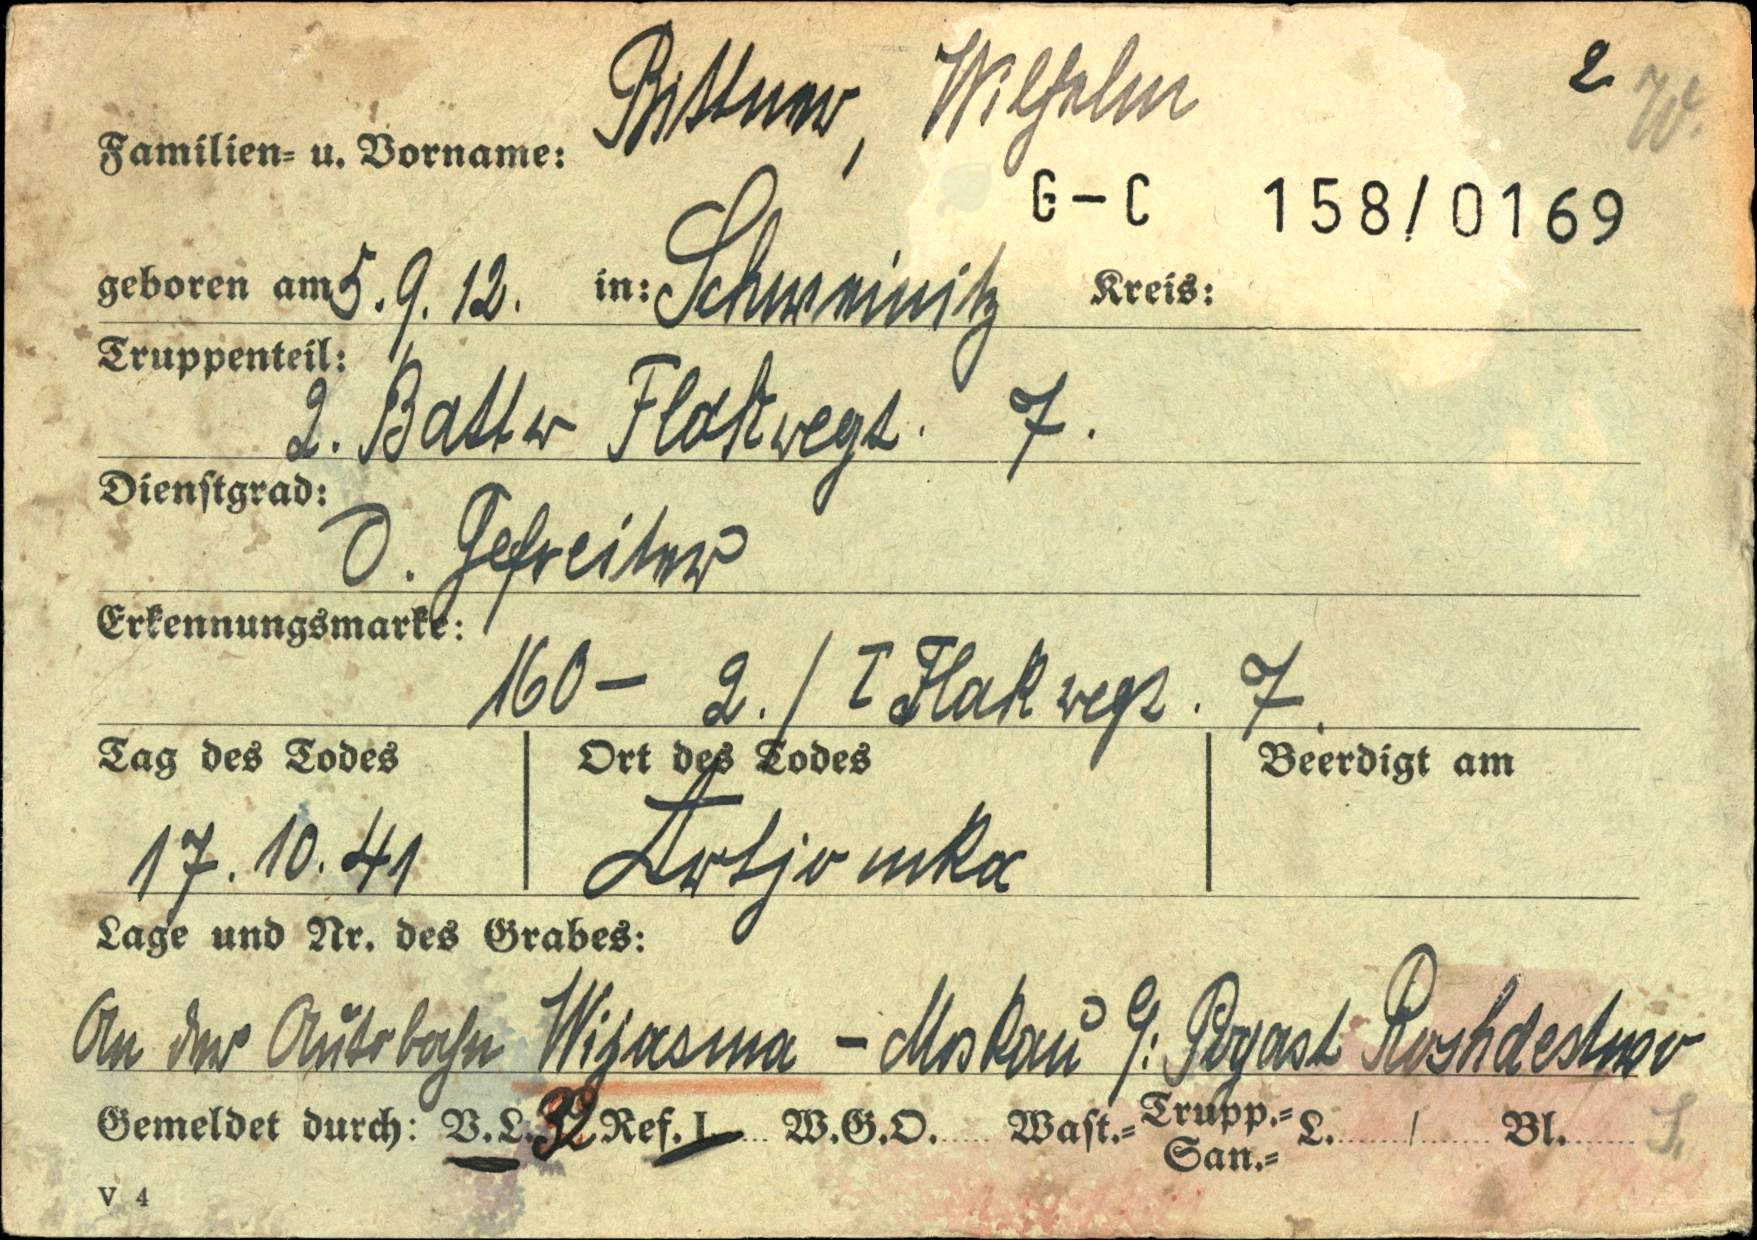 2 W.
Familien- u. Vorname: Bittner, Wilhelm
G-C 158/0169
geboren am 5.9.12. in: Schweinitz Kreis:
Truppenteil:
2. Battr Flakregt. 7.
Dienstgrad:
O. Gefreiter
Erkennungsmarke:
160 – 2./I Flak regt. 7.
Tag des Todes Ort des Todes Beerdigt am
17.10.41 Artjomka
Lage und Nr. des Grabes:
An der Autobahn Wijasma – Moskau 9: Pogast Roshdestwo
Gemeldet durch: V.L. 32 Ref. I W.G.O. Wast.- Trupp.- San.- L. / Bl.
V 4